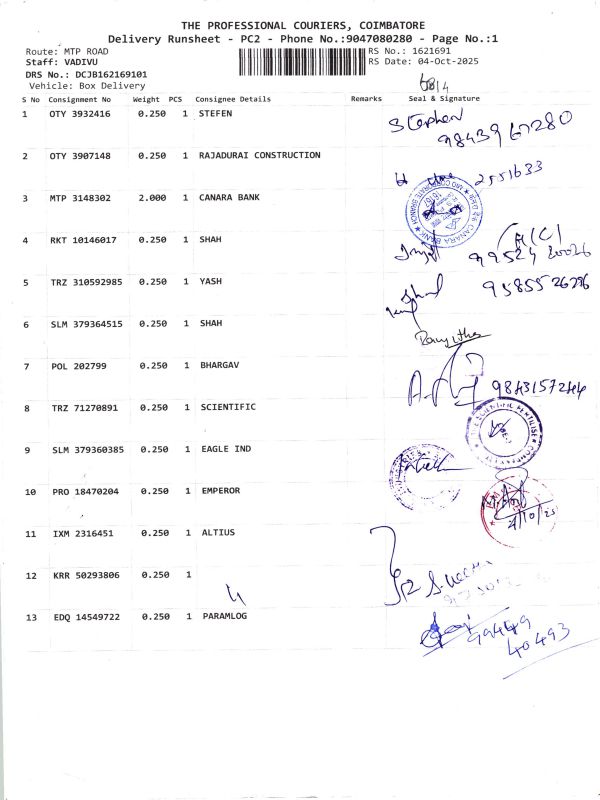 THE PROFESSIONAL COURIERS, COIMBATORE
Delivery Runsheet - PC2 - Phone No.:9047080280 - Page No.:1
Route: MTP ROAD
RS No.: 1621691
Staff: VADIVU
RS Date: 04-Oct-2025
DRS No.: DCJB162169101
Vehicle: Box Delivery
S No Consignment No Weight PCS Consignee Details Remarks Seal & Signature
1 OTY 3932416 0.250 1 STEFEN Stephen
98439 67280
2 OTY 3907148 0.250 1 RAJADURAI CONSTRUCTION 2551633
3 MTP 3148302 2.000 1 CANARA BANK
CANARA BANK
4 RKT 10146017 0.250 1 SHAH
99524 20026
5 TRZ 310592985 0.250 1 YASH 95855 26296
6 SLM 379364515 0.250 1 SHAH
7 POL 202799 0.250 1 BHARGAV 9843157244
8 TRZ 71270891 0.250 1 SCIENTIFIC
9 SLM 379360385 0.250 1 EAGLE IND
10 PRO 18470204 0.250 1 EMPEROR
4/10/25
11 IXM 2316451 0.250 1 ALTIUS
12 KRR 50293806 0.250 1
13 EDQ 14549722 0.250 1 PARAMLOG 99449
40493